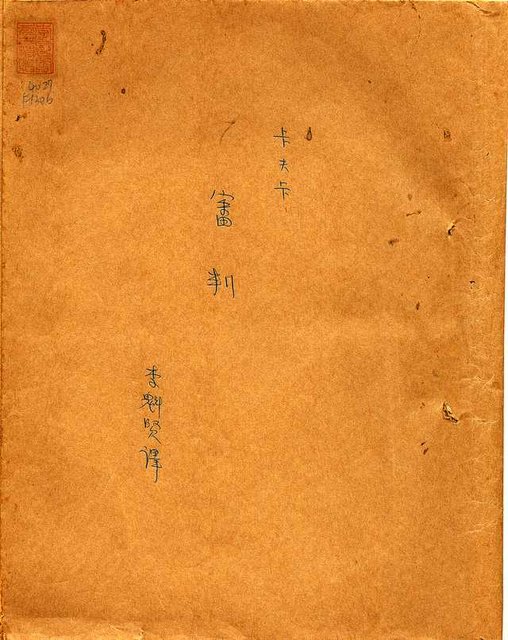 卡夫卡
審判
李魁賢譯